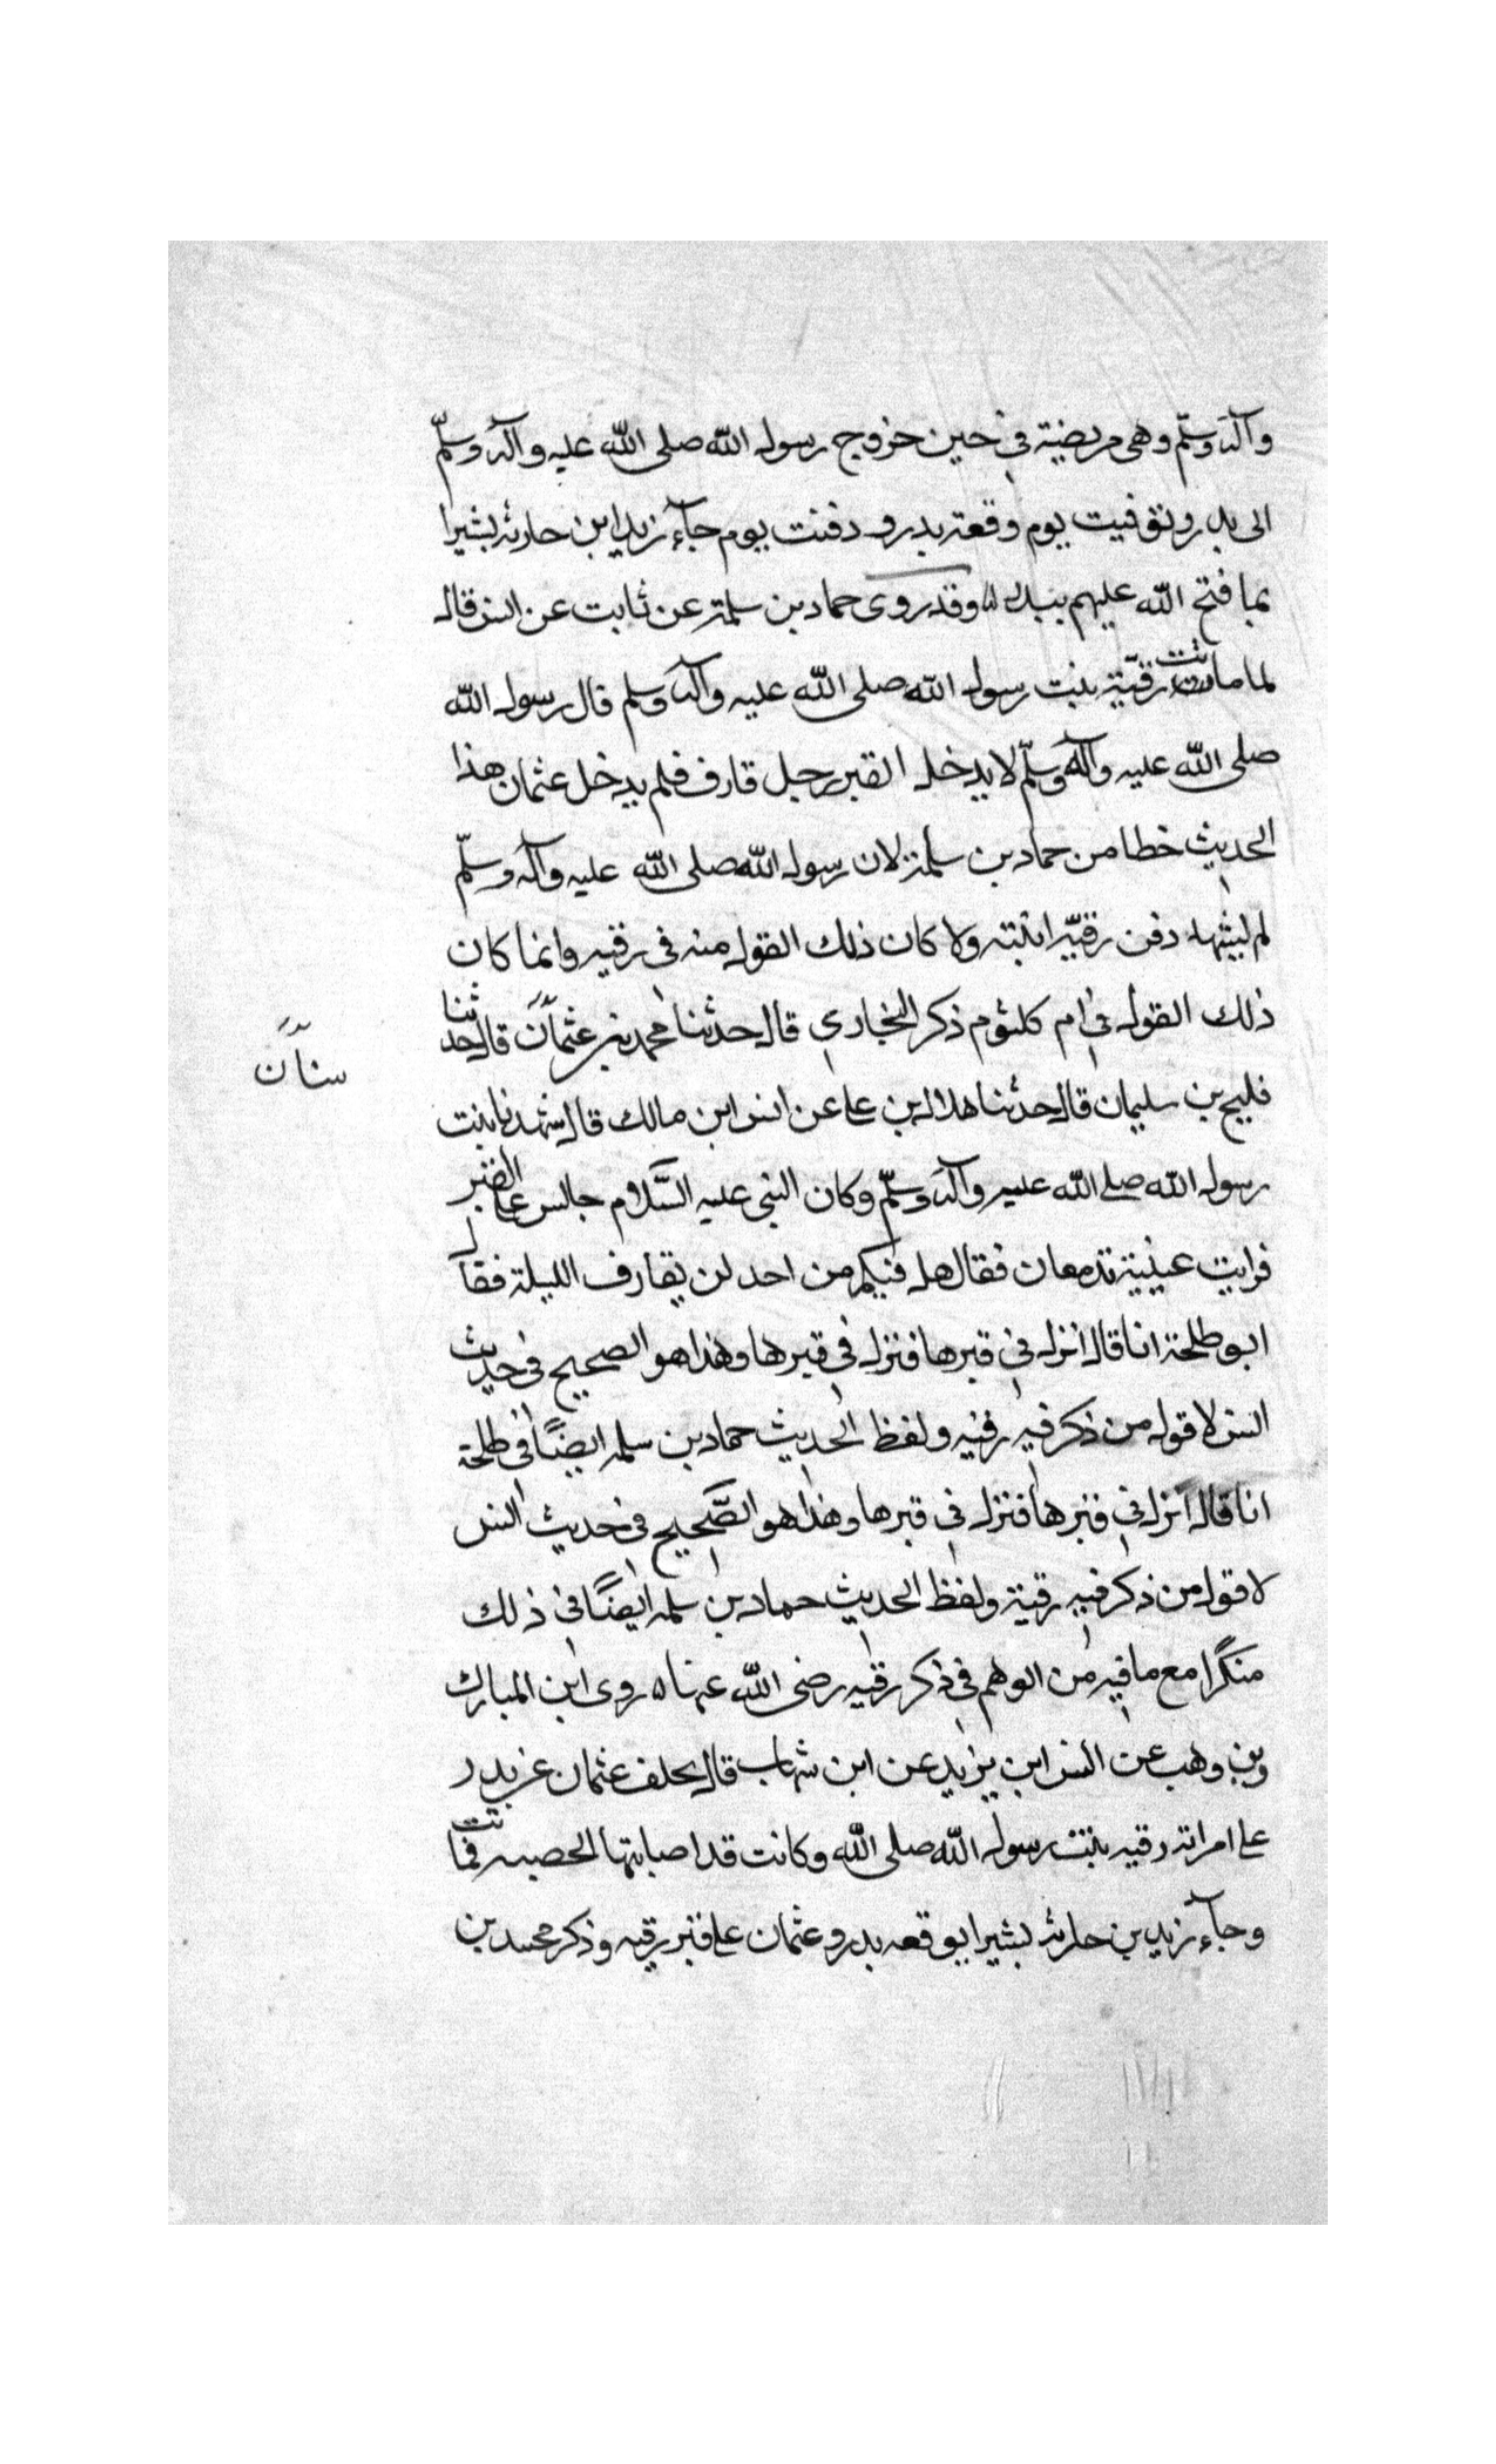 وآله وسلّم وهى مريضة فى حين خروج رسول الله صلى الله عليه وآله وسلّم
الى بدر وتوفيت يوم وقعة بدر و دفنت يوم جآء زيد ابن حارثه بشيرا
بما فتح الله عليهم ببدر وقد روى حماد بن سلمة عن ثابت عن انس قال
لما ماتت رقيّة بنت رسول الله صلى الله عليه وآله وسلم قال رسول الله
صلى الله عليه وآله وسلّم لا يدخل القبر رجل قارف فلم يدخل عثمان هذا
الحديث خطا من حماد بن سلمة لان رسول الله صلى الله عليه وآله وسلّم
لم يشهد دفن رقيّه ابنته ولا كان ذلك القول منه فى رقيه وانما كان
ذلك القول فى ام كلثوم ذكر البخارى قال حدثنا محمد بن عثمان قال حدثنا
سنان
فليح بن سليمان قال حدثنا هلال بن على عن انس ابن مالك قال شهدنا بنت
رسول الله صلى الله عليه وآله وسلّم وكان النبى عليه السّلام جالس على القبر
فرايت عينية تدمعان فقال هل فيكم من احد لن يقارف الليلة فقال
ابو طلحة انا قال انزل فى قبرها فنزل فى قبرها وهذا هو الصحيح فى حديث
انس لا قول من ذكر فيه رقيه ولفظ الحديث حماد بن سلمه ايضًا فى طلحة
انا قال انزل فى قبرها فنزل فى قبرها وهذا هو الصّحيح فى حديث انس
لا قول من ذكر فيه رقية ولفظ الحديث حماد بن سلمه ايضًا فى ذلك
منكرًا مع ما فيه من الوهم فى ذكر رقيه رضى الله عنها ه روى ابن المبارك
وبن وهب عن انس ابن يزيد عن ابن شهاب قال يخلف عثمان عن بدر
على امراته رقيه بنت رسول الله صلى الله وكانت قد اصابتها الحصبه فماتت
وجآء زيد بن حارثه بشيرا بوقعه بدر وعثمان على قبر رقيه وذكر محمد بن